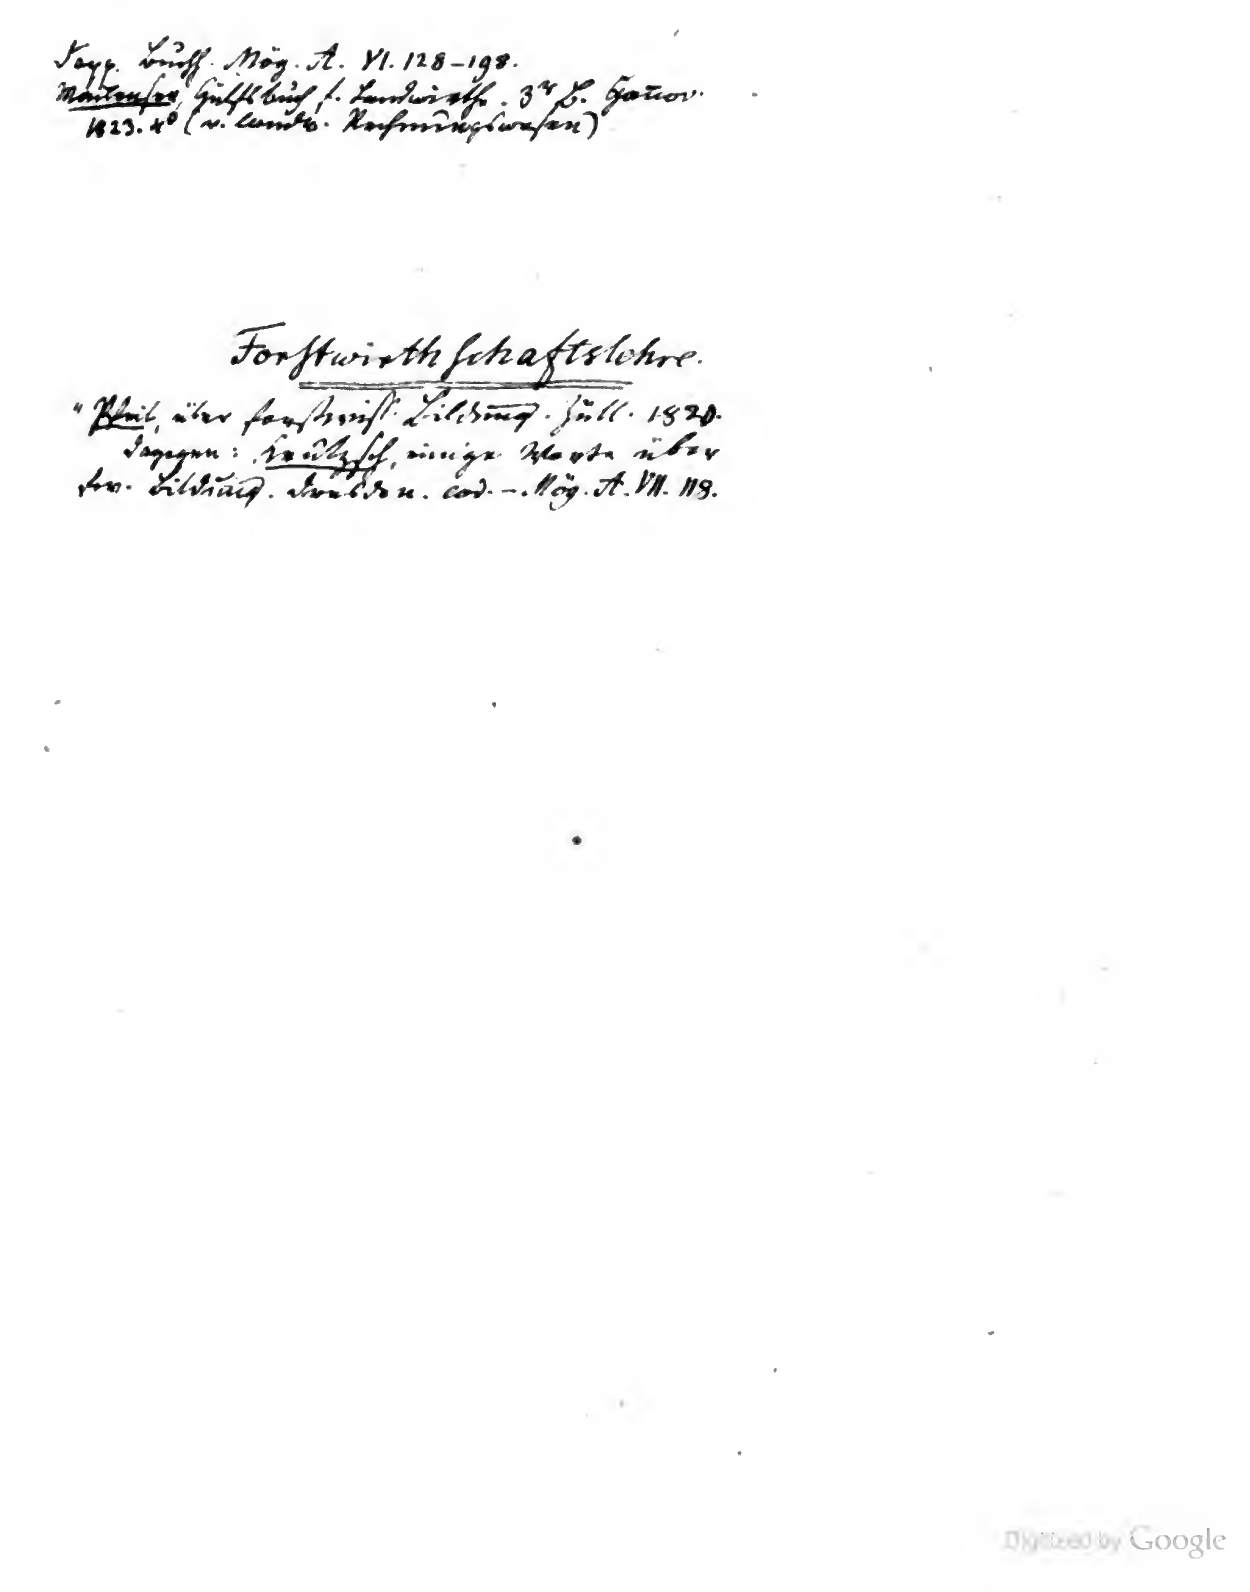 Dopp. Buchh. Mög. A. VI. 128–198.
Hülfsbuch f. Landwirthe. 3r B. Hanov.
1823. 4° (v. landw. Rechnungswesen)
Forstwirthschaftslehre.
" Pfeil, über forstwiss. Bildung. Züll. 1820.
dagegen: Krutzsch, einige Worte über
fw. Bildung. Dresden. eod. – Mög. A. VII. 118.
Digitized by Google